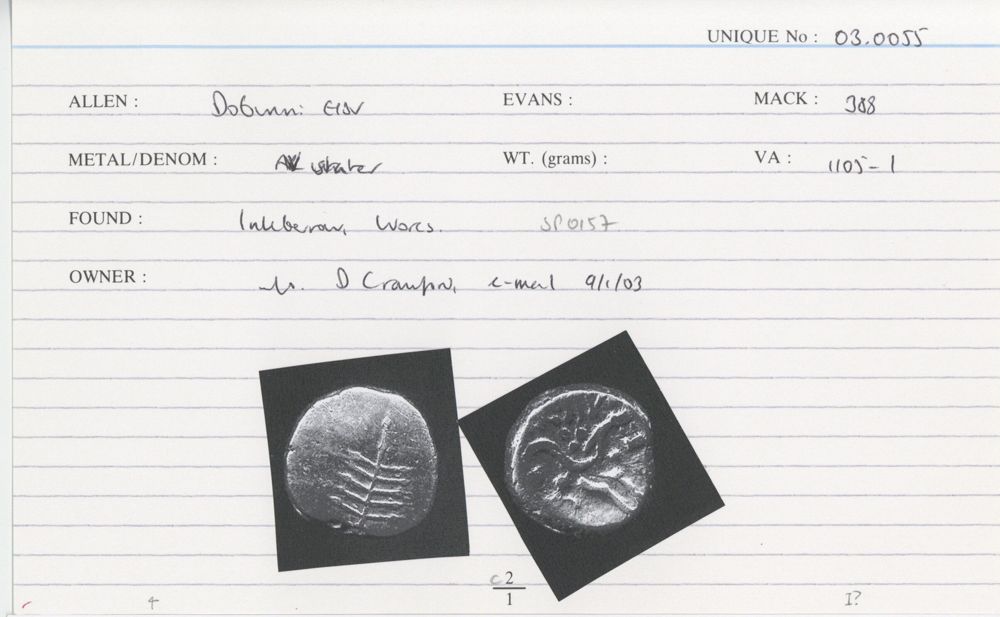 UNIQUE No : 03.0055
ALLEN : Dobunni EISV EVANS : MACK : 388
METAL/DENOM : stater WT. (grams) : VA : 1105-1
FOUND : Inkberrow, Worcs. SP0157
OWNER : D e-mail 9/1/03
c 2
1
I?